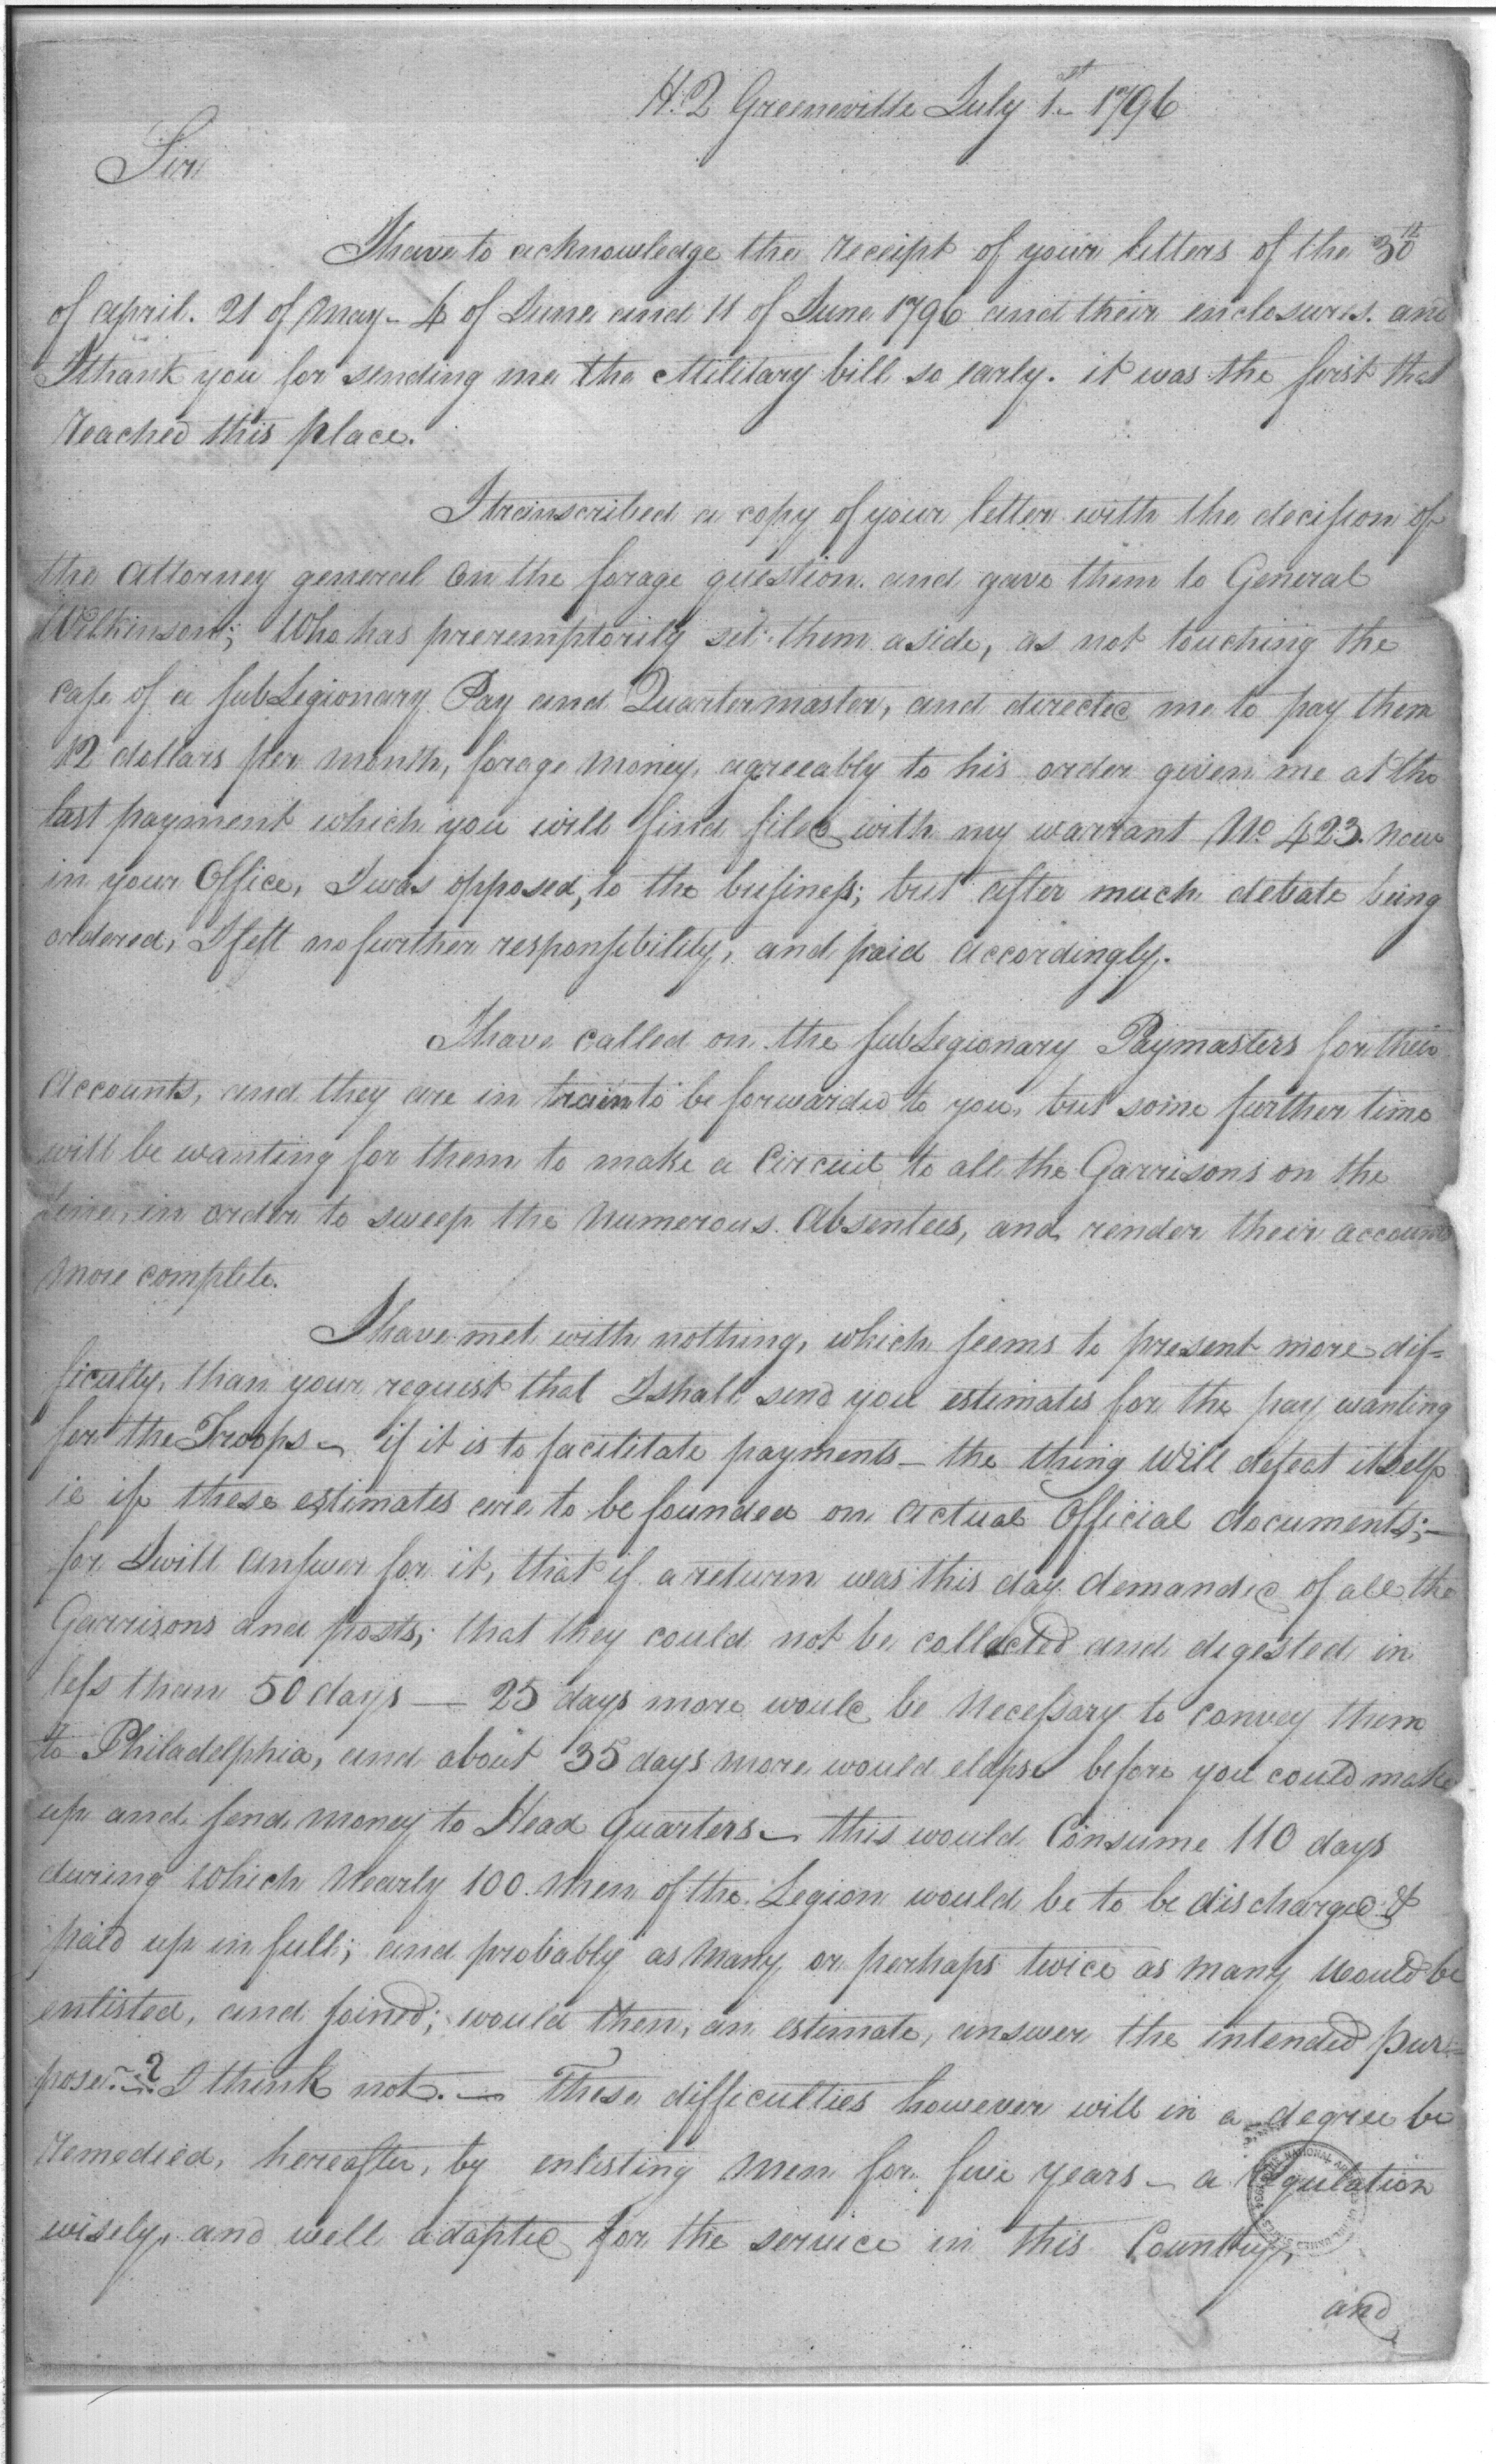 H.Q Greeneville July 1st 1796
Sir
I have to acknowledge the receipt of your letters of the 30th
of april. 21 of May - 4 of June and 11 of June 1796 and their enclosures. and
I thank you for sending me the Military bill so early. it was the first that
reached this place.
I transcribed a copy of your letter with the decision of
the Attorney general on the forage question. and gave them to General
Wilkinson; Who has preremptorily set them aside, as not touching the
case of a subLegionary Pay and Quartermaster, and directed me to pay them
12 dollars per month, forage money, agreeably to his order given me at the
last payment which you will find filed with my warrant No. 423. now
in your Office, I was opposed, to the business; but after much debate being
ordered, I felt no further responsibility, and paid accordingly.
I have called on the subLegionary Paymasters for their
Accounts, and they are in train to be forwarded to you, but some further time
will be wanting for them to make a Circuit to all the Garrisons on the
Line, in order to sweep the numerous Absentees, and render their accounts
more complete.
I have met with nothing, which seems to present more dif=
ficulty, than your request that I shall send you estimates for the pay wanting
for the Troops - if it is to facilitate payments - the thing Will defeat itself
ie if these estimates are to be founded on actual Official documents; -
for I will answer for it, that if a return was this day demanded of all the
Garrisons and posts; that they could not be collected and digested in
less than 50 days — 25 days more would be Necessary to convey them
to Philadelphia, and about 35 days more would elapse before you could make
up and send money to Head Quarters - this would Consume 110 days
during which Nearly 100 Men of the Legion would be to be discharged &
paid up in full; and probably as Many or perhaps twice as many would be
enlisted, and joined; would then, an estimate, answer the intended pur=
pose. - ? I think not. — These difficulties however will in a degree be
remedied, hereafter, by enlisting Men for five years - a regulation
wisely, and well adapted for the service in this Country,
and